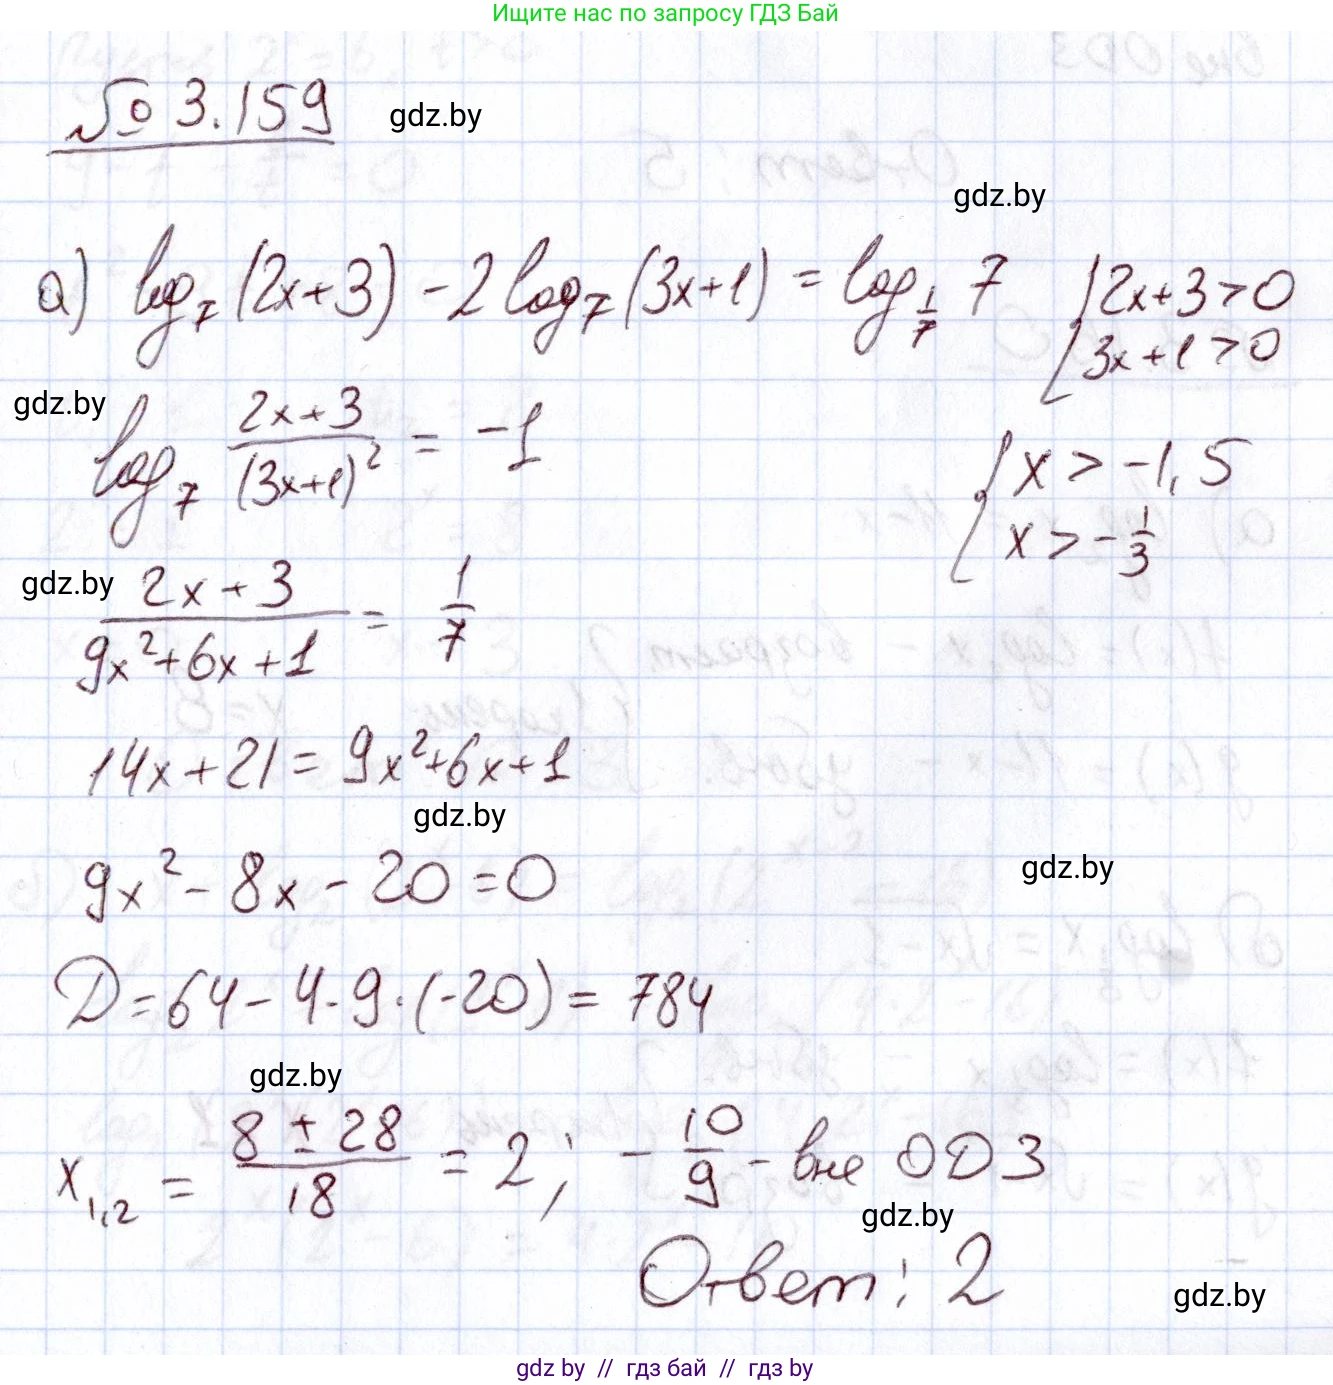 Ищите нас по запросу ГДЗ Бай
№ 3.159
gdz.by
gdz.by
а) log₇(2x+3) - 2log₇(3x+1) = log_{1/7} 7 { 2x+3>0
3x+1>0
gdz.by
log₇ (2x+3)/(3x+1)² = -1 { x > -1,5
x > -1/3
gdz.by
(2x+3)/(9x²+6x+1) = 1/7
14x+21 = 9x²+6x+1
gdz.by
gdz.by
9x² - 8x - 20 = 0
D = 64 - 4·9·(-20) = 784
gdz.by
x₁,₂ = (8 ± 28)/18 = 2; -10/9 - вне ОДЗ
gdz.by
Ответ: 2
gdz.by
gdz by // гдз бай // гдз by